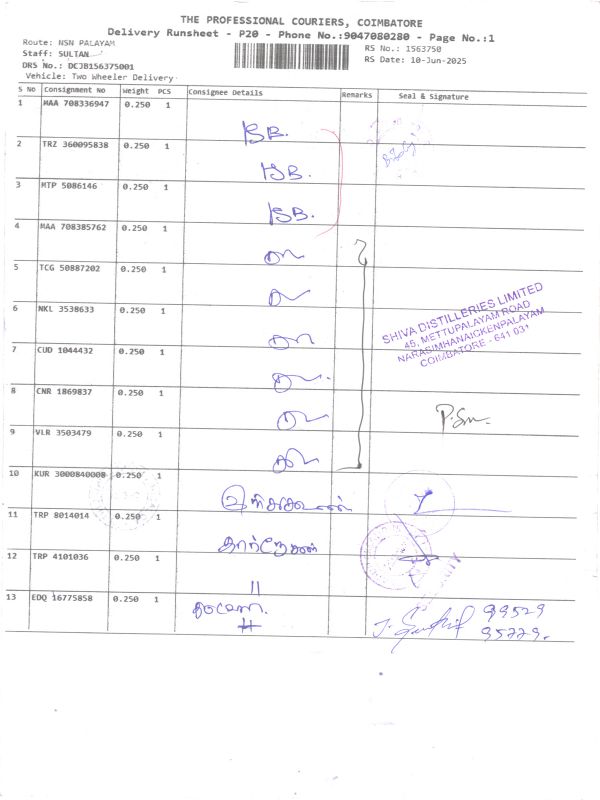 THE PROFESSIONAL COURIERS, COIMBATORE
Delivery Runsheet - P20 - Phone No.:9047080280 - Page No.:1
Route: NSN PALAYAM
RS No.: 1563750
Staff: SULTAN
RS Date: 10-Jun-2025
DRS No.: DCJB156375001
Vehicle: Two Wheeler Delivery
S No Consignment No Weight PCS Consignee Details Remarks Seal & Signature
1 MAA 708336947 0.250 1
KSB.
2 TRZ 360095838 0.250 1
KSB.
3 MTP 5086146 0.250 1
KSB.
4 MAA 708385762 0.250 1
5 TCG 50887202 0.250 1
6 NKL 3538633 0.250 1
SHIVA DISTILLERIES LIMITED
45, METTUPALAYAM ROAD
NARASIMHANAICKENPALAYAM
COIMBATORE - 641 031
7 CUD 1044432 0.250 1
8 CNR 1869837 0.250 1
9 VLR 3503479 0.250 1
10 KUR 3000840008 0.250 1
11 TRP 8014014 0.250 1
12 TRP 4101036 0.250 1
13 EDQ 16775858 0.250 1
99529
95779.